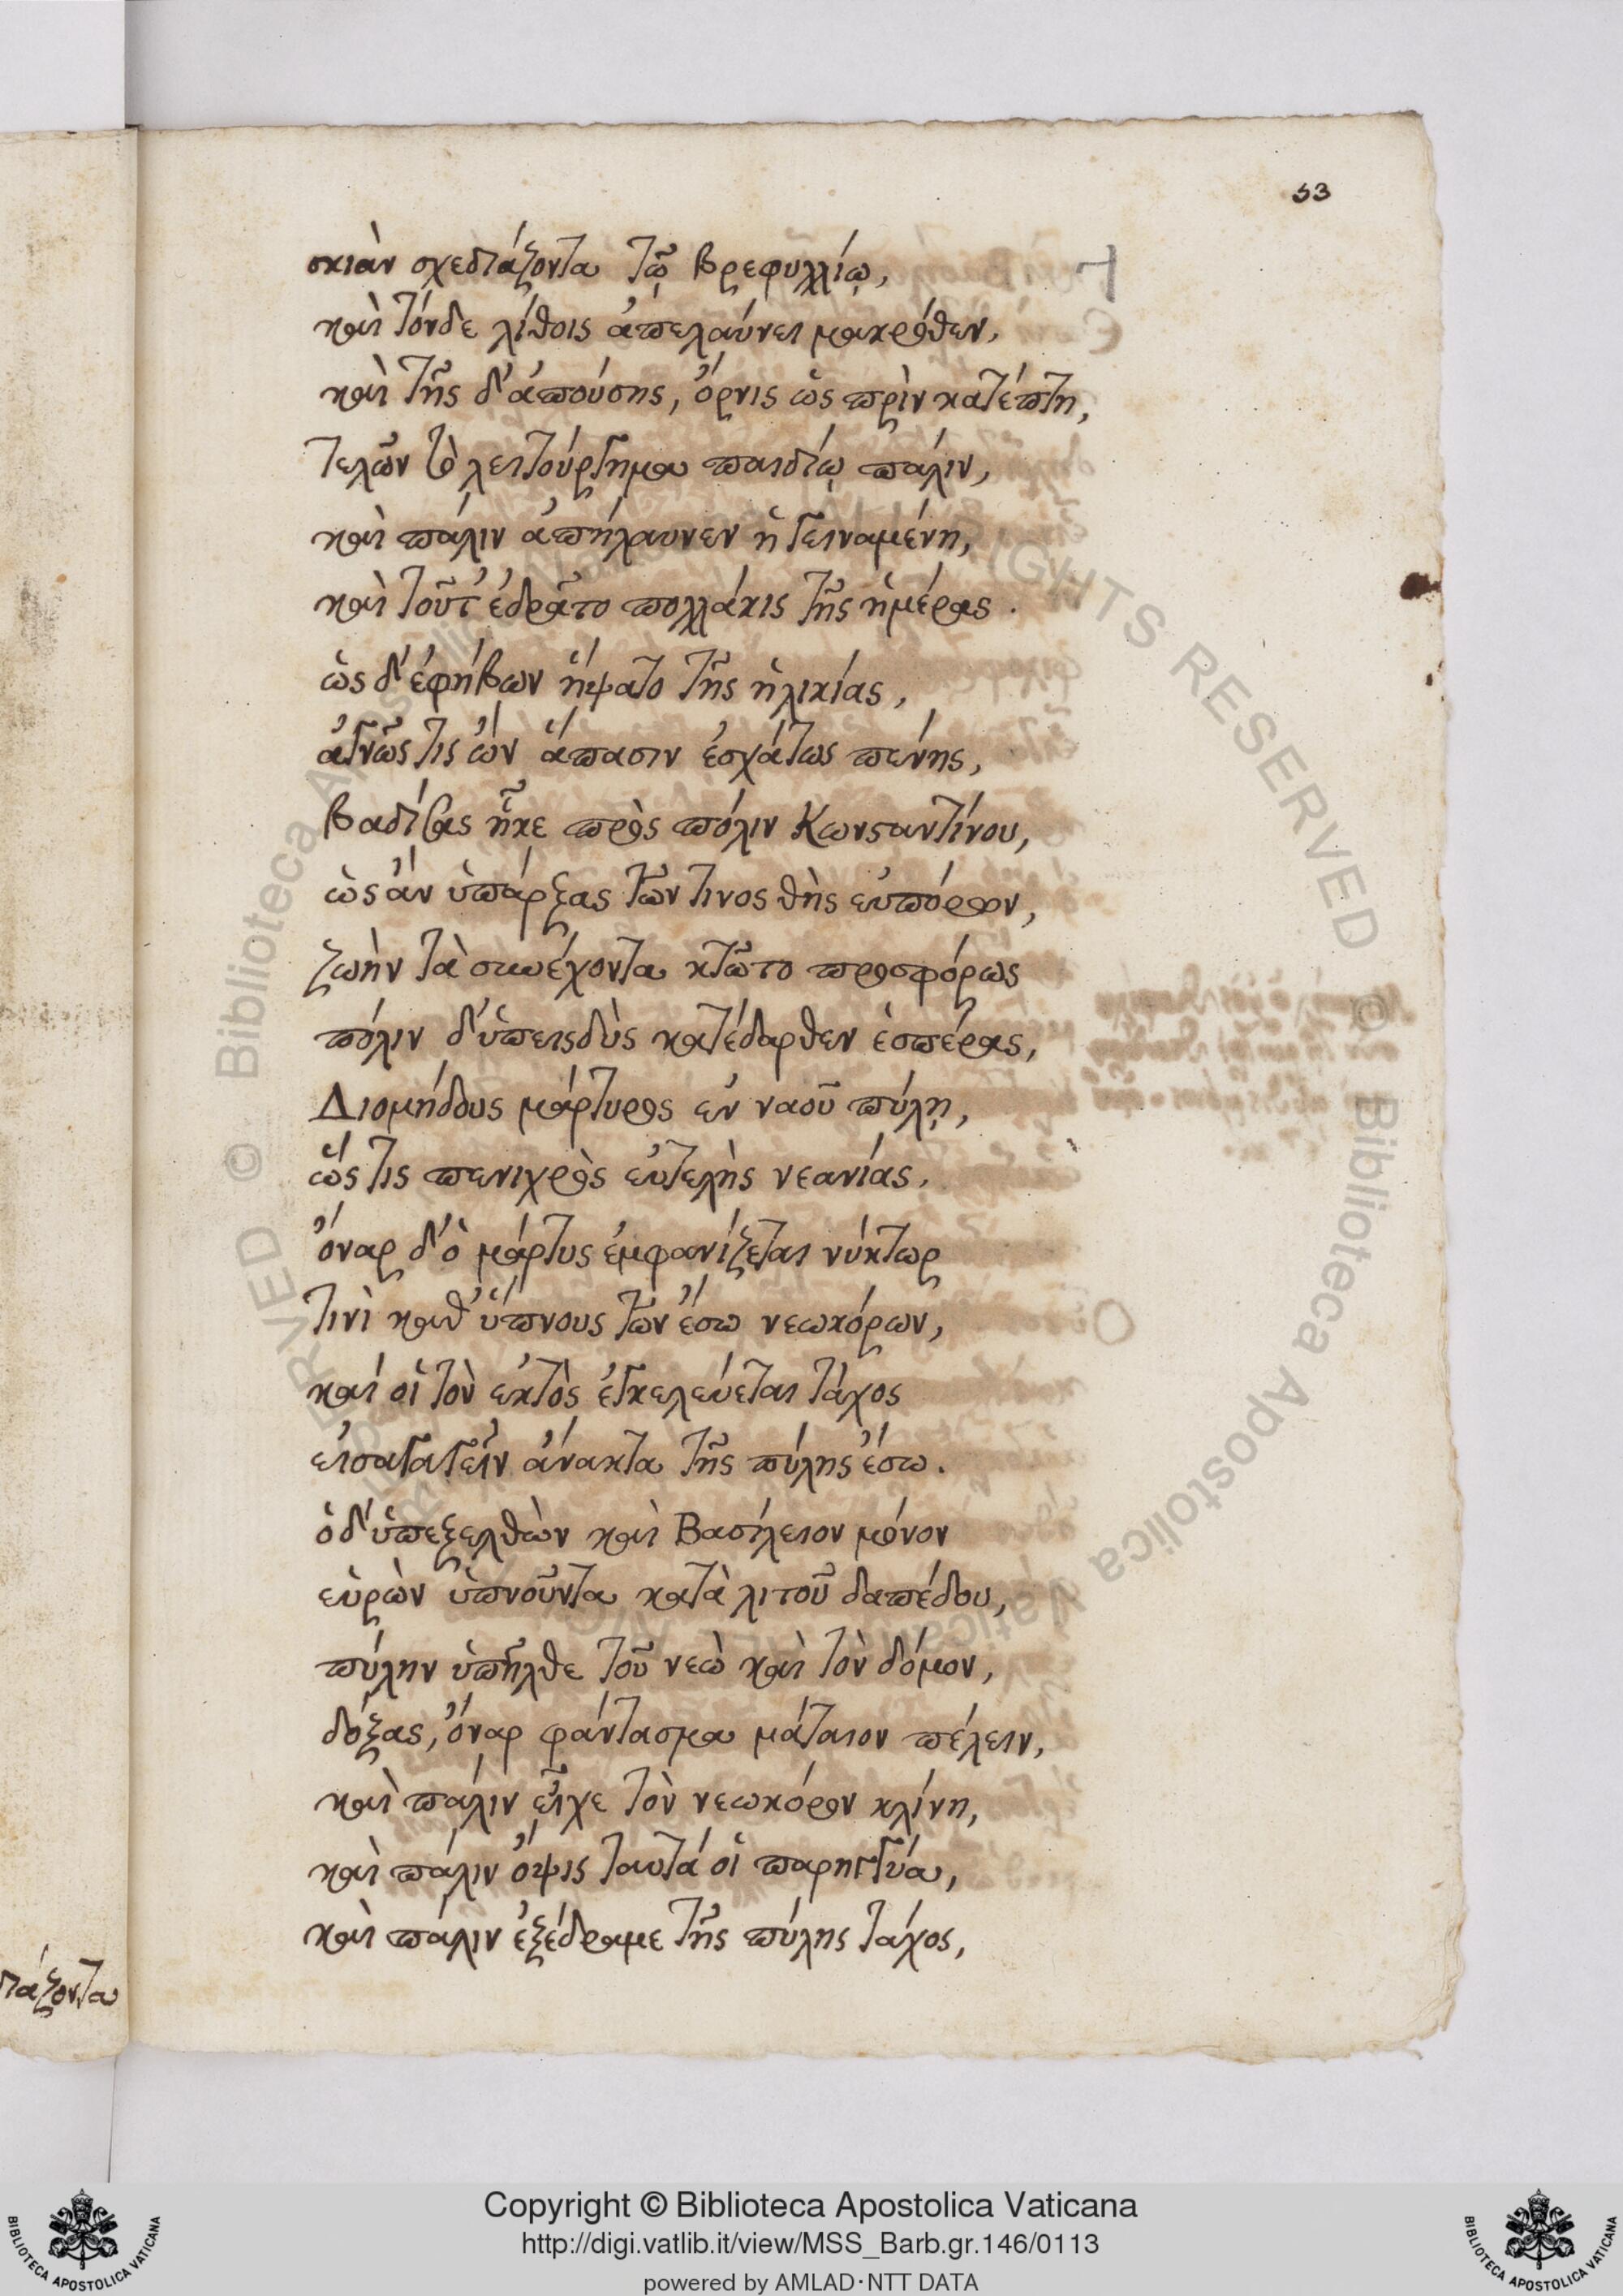 53
σκιὰν σχεδιάζοντα τῷ βρεφυλλίῳ,
καὶ τόνδε λίθοις ἀπελαύνει μακρόθεν,
καὶ τῆς δ' ἀπούσης, ὄρνις ὡς πρὶν κατέπτη,
τελῶν τὸ λειτούργημα παιδίῳ πάλιν,
καὶ πάλιν ἀπήλαυνεν ἡ γειναμένη,
καὶ τοῦτ' ἐδρᾶτο πολλάκις τῆς ἡμέρας.
ὡς δ' ἐφήβων ἥψατο τῆς ἡλικίας,
ἀγνῶς τις ὢν ἅπασιν ἐσχάτως πένης,
βαδίσας ἧκε πρὸς πόλιν Κωνσταντίνου,
ὡς ἂν ὑπάρξας τῶν τινος θὴς εὐπόρων,
ζωὴν τὰ συνέχοντα κτῷτο προσφόρως
πόλιν δ' ὑπεισδὺς κατέδαρθεν ἑσπέρας,
Διομήδους μάρτυρος ἐν ναοῦ πύλῃ,
ὥς τις πενιχρὸς εὐτελὴς νεανίας.
ὄναρ δ' ὁ μάρτυς ἐμφανίζεται νύκτωρ
τινὶ καθ' ὕπνους τῶν ἔσω νεωκόρων,
καί οἱ τὸν ἐκτὸς ἐγκελεύεται τάχος
εἰσαγαγεῖν ἄνακτα τῆς πύλης ἔσω.
ὁ δ' ὑπεξελθὼν καὶ Βασίλειον μόνον
εὑρὼν ὑπνοῦντα κατὰ λιτοῦ δαπέδου,
πύλην ὑπῆλθε τοῦ νεὼ καὶ τὸν δόμον,
δόξας, ὄναρ φάντασμα μάταιον πέλειν,
καὶ πάλιν εἶχε τὸν νεωκόρον κλίνη,
καὶ πάλιν ὄψις ταυτά οἱ παρηγγύα,
καὶ πάλιν ἐξέδραμε τῆς πύλης τάχος,
διάζοντα
Copyright © Biblioteca Apostolica Vaticana
http://digi.vatlib.it/view/MSS_Barb.gr.146/0113
powered by AMLAD·NTT DATA
BIBLIOTECA APOSTOLICA VATICANA
BIBLIOTECA APOSTOLICA VATICANA